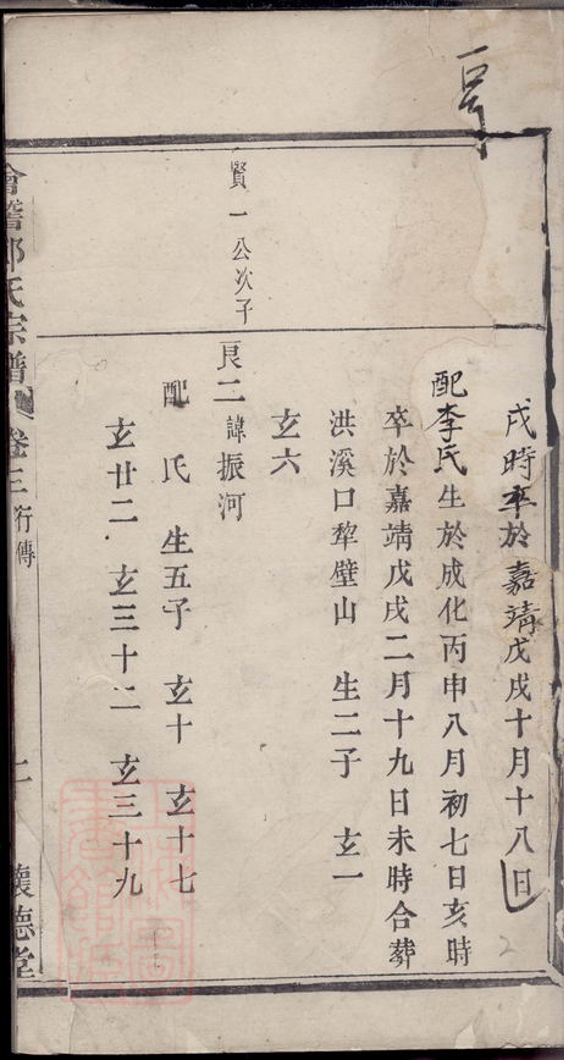 戌時卒於嘉靖戊戌十月十八日
配李氏生於成化丙申八月初七日亥時
卒於嘉靖戊戌二月十九日未時合葬
洪溪口犂壁山 生二子 玄一
玄六
賢一公次子
良二諱振河
配 氏 生五子 玄十 玄十七
玄廿二 玄三十二 玄三十九
會稽 氏宗譜 卷三 行傳 二 懷德堂
2